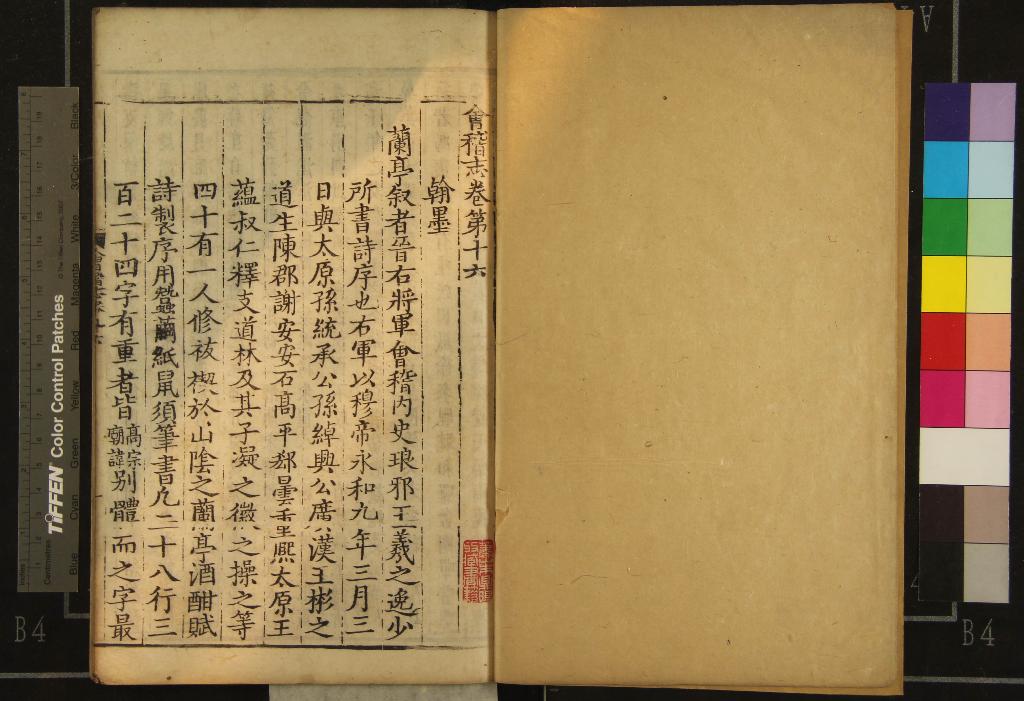 會稽志卷第十六
翰墨
蘭亭叙者晉右將軍會稽内史琅邪王羲之逸少
所書詩序也右軍以穆帝永和九年三月三
日與太原孫統承公孫綽興公廣漢王彬之
道生陳郡謝安安石髙平郗曇重熈太原王
蘊叔仁釋支道林及其子凝之徽之操之等
四十有一人修祓禊於山陰之蘭亭酒酣賦
詩製序用蠶繭紙鼠須筆書凡二十八行三
百二十四字有重者皆髙宗廟諱別體而之字最
TIFFEN Color Control Patches
Blue Cyan Green Yellow Red Magenta White 3/Color Black
Centimetres
Inches
B4
B4